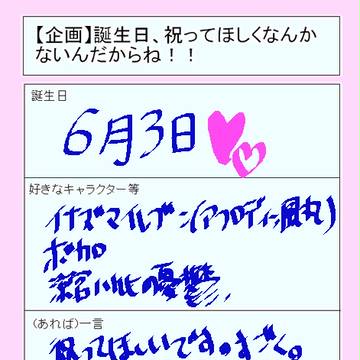 【企画】誕生日、祝ってほしくなんか
ないんだからね！！
誕生日
6月3日
好きなキャラクター等
イナズマイレブン(アフロディ、風丸)
ボカロ
涼宮ハルヒの憂鬱、
（あれば)一言
祝ってほしいです。すごく。